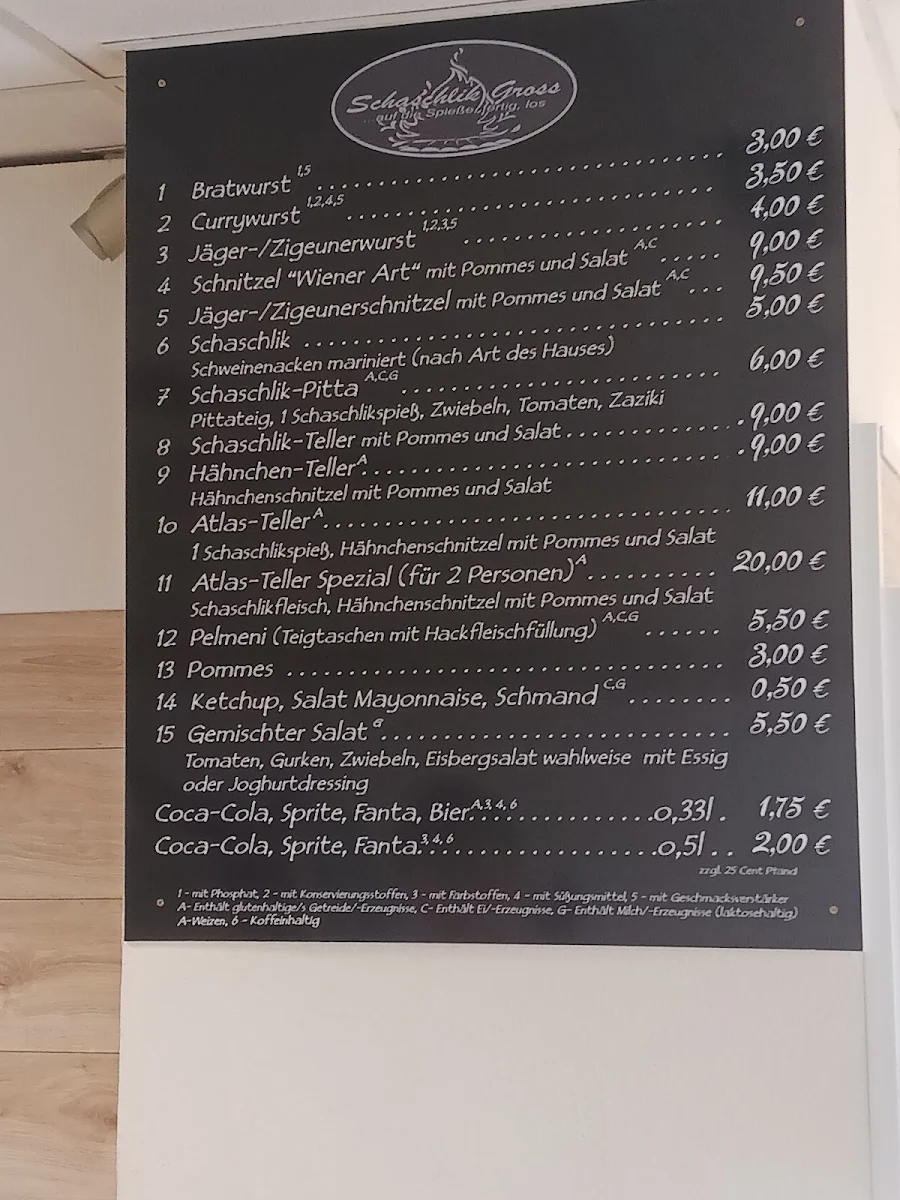 Schaschlik Gross
...auf die Spieße, fertig, los
1 Bratwurst 1,5 3,00 €
2 Currywurst 1,2,4,5 3,50 €
3 Jäger-/Zigeunerwurst 1,2,3,5 4,00 €
4 Schnitzel “Wiener Art“ mit Pommes und Salat A,C 9,00 €
5 Jäger-/Zigeunerschnitzel mit Pommes und Salat A,C 9,50 €
6 Schaschlik 5,00 €
Schweinenacken mariniert (nach Art des Hauses)
7 Schaschlik-Pitta A,C,G 6,00 €
Pittateig, 1 Schaschlikspieß, Zwiebeln, Tomaten, Zaziki
8 Schaschlik-Teller mit Pommes und Salat 9,00 €
9 Hähnchen-Teller A 9,00 €
Hähnchenschnitzel mit Pommes und Salat
10 Atlas-Teller A 11,00 €
1 Schaschlikspieß, Hähnchenschnitzel mit Pommes und Salat
11 Atlas-Teller Spezial (für 2 Personen) A 20,00 €
Schaschlikfleisch, Hähnchenschnitzel mit Pommes und Salat
12 Pelmeni (Teigtaschen mit Hackfleischfüllung) A,C,G 5,50 €
13 Pommes 3,00 €
14 Ketchup, Salat Mayonnaise, Schmand C,G 0,50 €
15 Gemischter Salat G 5,50 €
Tomaten, Gurken, Zwiebeln, Eisbergsalat wahlweise mit Essig
oder Joghurtdressing
Coca-Cola, Sprite, Fanta, Bier A,3,4,6 0,33l 1,75 €
Coca-Cola, Sprite, Fanta 3,4,6 0,5l 2,00 €
zzgl. 25 Cent Pfand
1 - mit Phosphat, 2 - mit Konservierungsstoffen, 3 - mit Farbstoffen, 4 - mit Süßungsmittel, 5 - mit Geschmacksverstärker
A- Enthält glutenhaltige/s Getreide/-Erzeugnisse, C- Enthält Ei/-Erzeugnisse, G- Enthält Milch/-Erzeugnisse (laktosehaltig)
A-Weizen, 6 - Koffeinhaltig